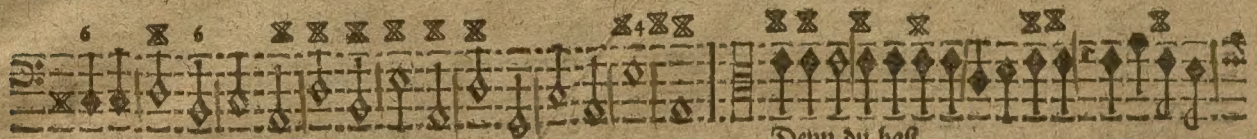 6 6 4
Denn du hast